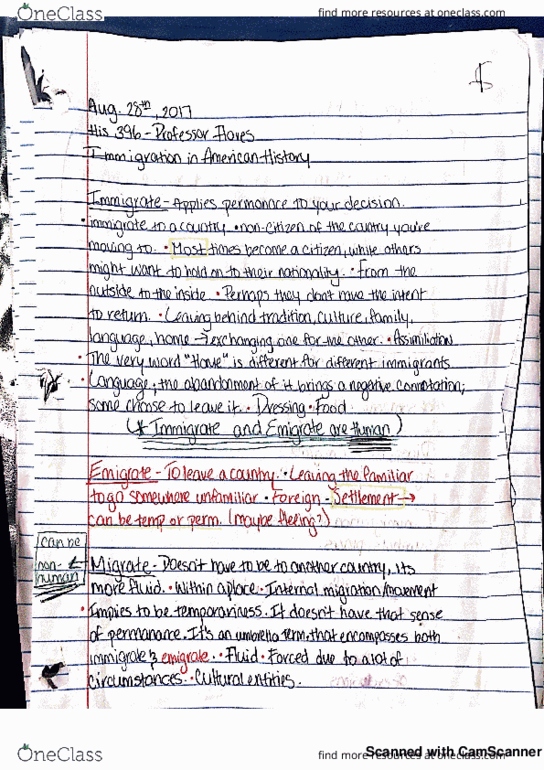 OneClass
find more resources at oneclass.com
$
Aug. 28th, 2017
His 396 - Professor Flores
Immigration in American History
Immigrate - Applies permanance to your decision.
• immigrate to a country • non-citizen of the country you're
moving to. • Most times become a citizen, while others
might want to hold on to their nationality. • from the
outside to the inside • Perhaps they don't have the intent
to return. • Leaving behind tradition, culture, family,
language, home → exchanging one for the other. • Assimilation
• The very word "Home" is different for different immigrants
• Language, the abandonment of it brings a negative connotation;
some choose to leave it. • Dressing • Food
(* Immigrate and Emigrate are Human)
Emigrate - To leave a country. • Leaving the familiar
to go somewhere unfamiliar • Foreign - Settlement →
can be temp or perm. (maybe fleeing?)
can be
non- ←
human
Migrate - Doesn't have to be to another country, its
more fluid. • Within a place • Internal migration/movement
• Implies to be temporariness. It doesn't have that sense
of permanance. It's an umbrella term, that encompasses both
immigrate & emigrate. • Fluid • Forced due to a lot of
circumstances. • Cultural entities.
OneClass
find more resources at oneclass.com
Scanned with CamScanner